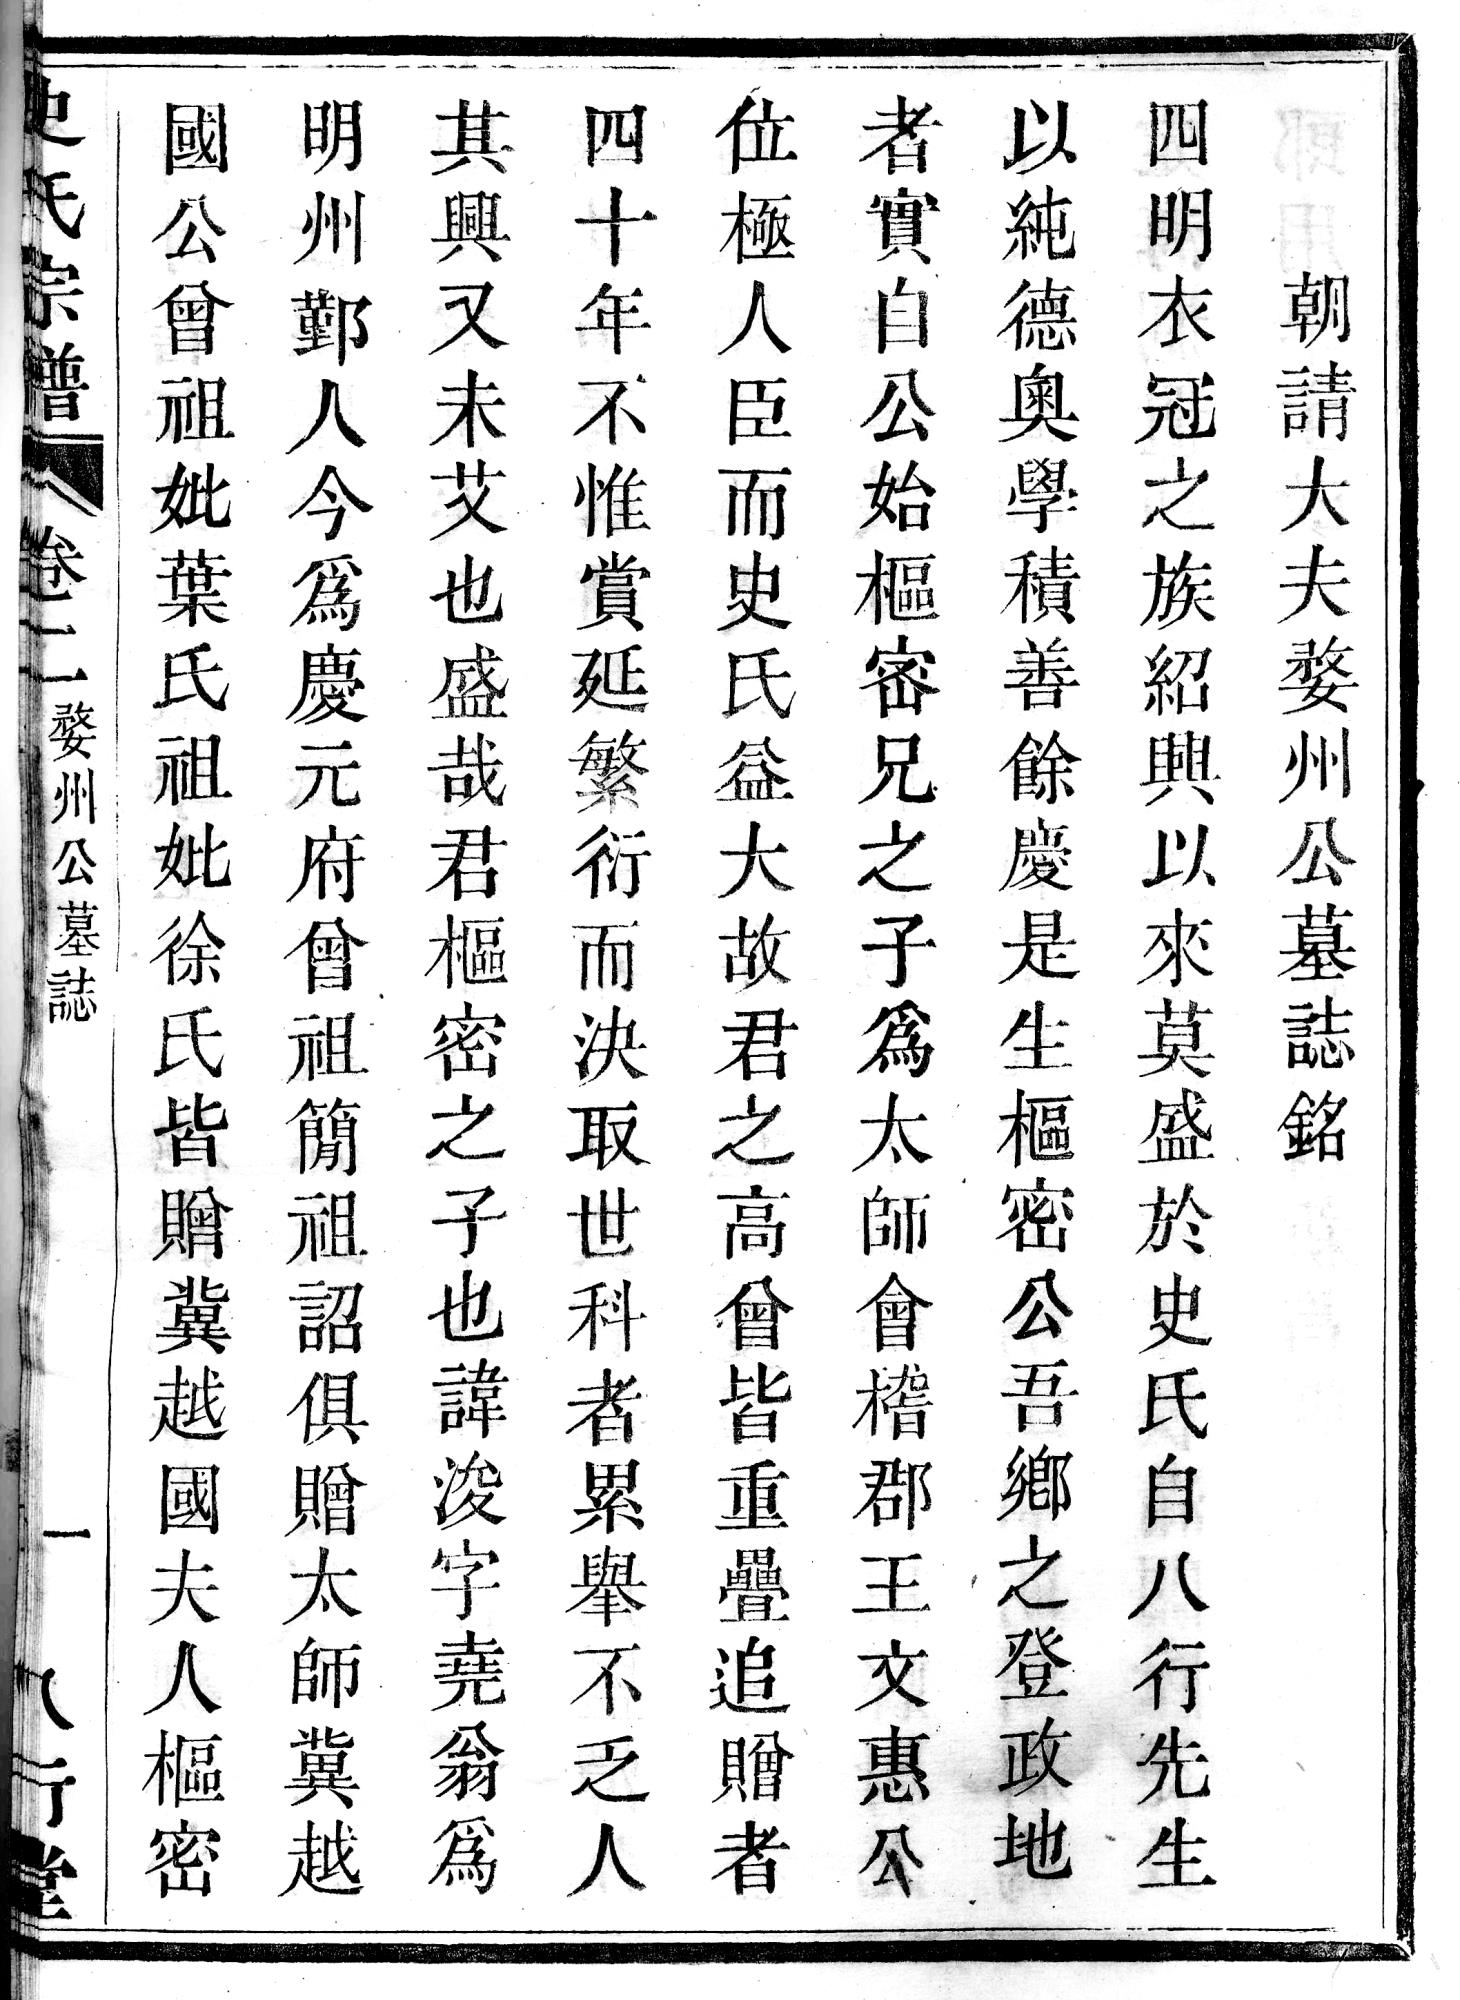 朝請大夫婺州公墓誌銘
四明衣冠之族紹興以來莫盛於史氏自八行先生
以純德奥學積善餘慶是生樞密公吾鄉之登政地
者實自公始樞密兄之子爲太師會稽郡王文惠公
位極人臣而史氏益大故君之高曾皆重疊追贈者
四十年不惟賞延繁衍而決取世科者累舉不乏人
其興又未艾也盛哉君樞密之子也諱浚字堯翁爲
明州鄞人今爲慶元府曾祖簡祖詔俱贈太師冀越
國公曾祖妣葉氏祖妣徐氏皆贈冀越國夫人樞密
史氏宗譜 卷二 婺州公墓誌 一 八行堂